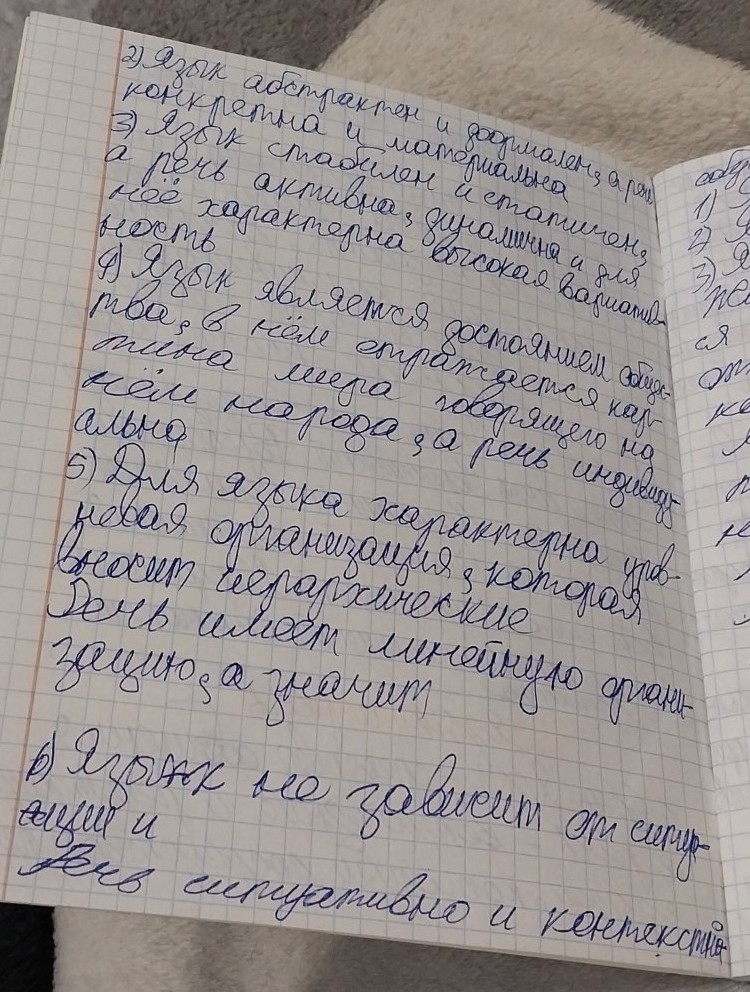 2) Язык абстрактен и формален, а речь
конкретна и материальна
3) Язык стабилен и статичен,
а речь активна, динамична и для
неё характерна высокая вариатив-
ность
4) Язык является достоянием общес-
тва, в нём отражается кар-
тина мира говорящего на
нём народа, а речь индивиду-
альна
5) Для языка характерна уров-
невая организация, которая
вносит иерархические
Речь имеет линейную органи-
зацию, а значит
6) Язык не зависит от ситуа-
ции и
Речь ситуативно и контекстно-
1)
2)
3)
ся